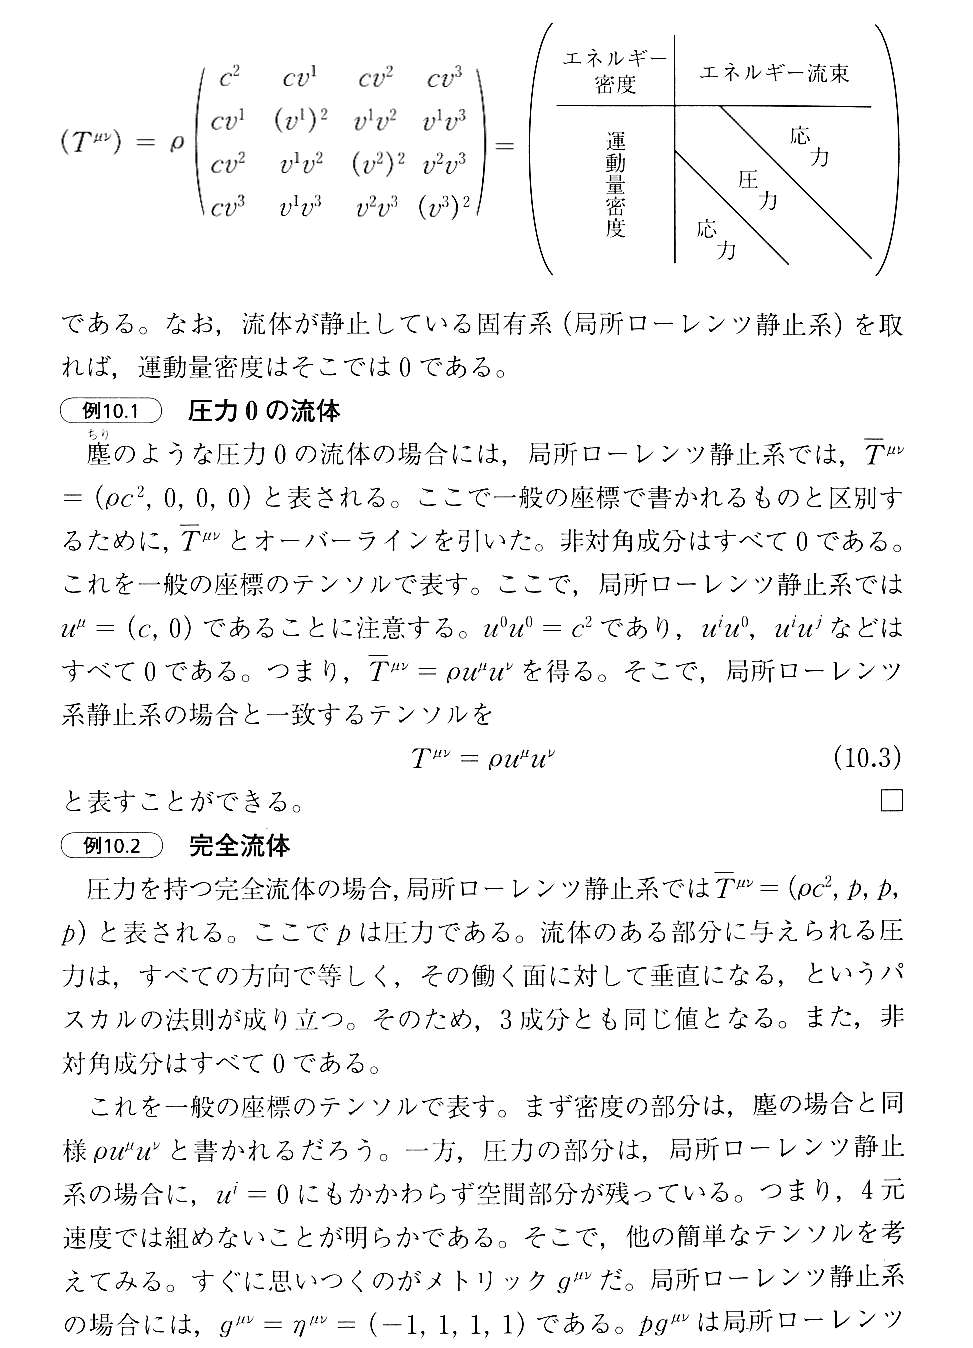 (T^{μν}) = ρ ( c² cv¹ cv² cv³ = エネルギー密度 エネルギー流束
cv¹ (v¹)² v¹v² v¹v³ 運動量密度 応力
cv² v¹v² (v²)² v²v³ 圧力
cv³ v¹v³ v²v³ (v³)² ) 応力
である。なお，流体が静止している固有系（局所ローレンツ静止系）を取
れば，運動量密度はそこでは0である。
例10.1 圧力0の流体
ちり
塵のような圧力0の流体の場合には，局所ローレンツ静止系では，T̅^{μν}
= (ρc², 0, 0, 0) と表される。ここで一般の座標で書かれるものと区別す
るために，T̅^{μν}とオーバーラインを引いた。非対角成分はすべて0である。
これを一般の座標のテンソルで表す。ここで，局所ローレンツ静止系では
u^μ = (c, 0) であることに注意する。u⁰u⁰ = c² であり，u^iu⁰，u^iu^j などは
すべて0である。つまり，T̅^{μν} = ρu^μu^ν を得る。そこで，局所ローレンツ
系静止系の場合と一致するテンソルを
T^{μν} = ρu^μu^ν (10.3)
と表すことができる。 □
例10.2 完全流体
圧力を持つ完全流体の場合，局所ローレンツ静止系ではT̅^{μν} = (ρc², p, p,
p) と表される。ここでpは圧力である。流体のある部分に与えられる圧
力は，すべての方向で等しく，その働く面に対して垂直になる，というパ
スカルの法則が成り立つ。そのため，3成分とも同じ値となる。また，非
対角成分はすべて0である。
これを一般の座標のテンソルで表す。まず密度の部分は，塵の場合と同
様ρu^μu^νと書かれるだろう。一方，圧力の部分は，局所ローレンツ静止
系の場合に，u^i = 0にもかかわらず空間部分が残っている。つまり，4元
速度では組めないことが明らかである。そこで，他の簡単なテンソルを考
えてみる。すぐに思いつくのがメトリックg^{μν}だ。局所ローレンツ静止系
の場合には，g^{μν} = η^{μν} = (−1, 1, 1, 1) である。pg^{μν}は局所ローレンツ